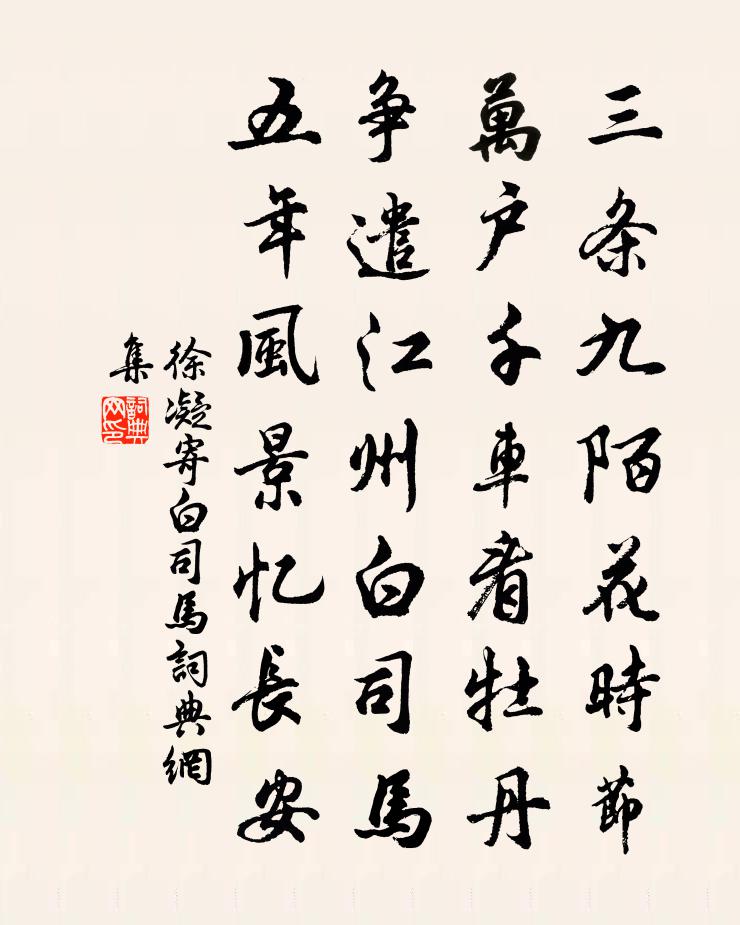 三条九陌花時節
萬户千車看牡丹
争遣江州白司馬
五年風景忆長安
徐凝寄白司馬詞典網
集
詞典
网印